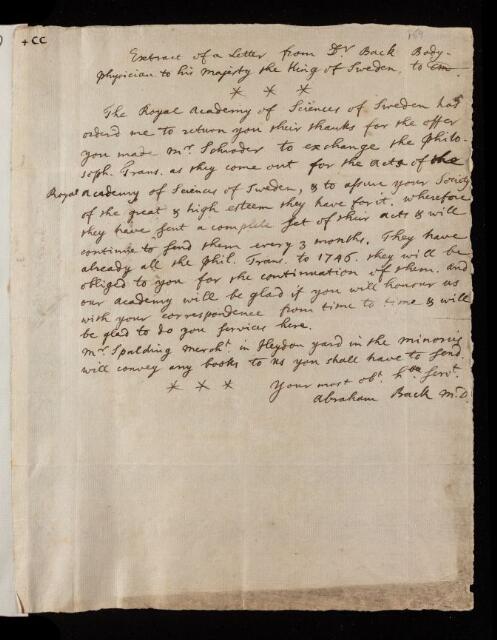 +CC
169
Extract of a Letter from Dr Back Body-
physician to his Majesty the King of Sweden, to
* * *
The Royal Academy of Sciences of Sweden has
orderd me to return you their thanks for the offer
you made Mr Schroder to exchange the Philo-
soph. Trans. as they come out for the acts of the
Royal Academy of Sciences of Sweden, & to assure your Society
of the great & high esteem they have for it. wherefore
they have sent a complete set of their acts & will
continue to send them every 3 months. They have
already all the Phil. Trans. to 1746. they will be
obliged to you for the continuation of them. and
our academy will be glad if you will honour us
with your correspondence from time to time & will
be glad to do you services here.
Mr Spalding mercht in Heydon yard in the minories
will convey any books to us you shall have to send.
* * * Your most obt. hble servt.
Abraham Back M.D.